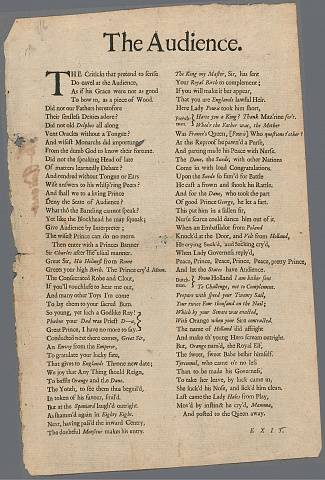 The Audience.
THE Criticks that pretend to sense
Do cavel at the Audience,
As if his Grace were not as good
To bow to, as a piece of Wood.
Did not our Fathers heretofore
Their senseless Deities adore?
Did not old Delphos all along
Vent Oracles without a Tongue?
And wisest Monarchs did importune
From the dumb God to know their fortune.
Did not the speaking Head of late
Of matters learnedly Debate?
And endued without Tongue or Ears
Wise answers to his whisp'ring Peers?
And shall we to a living Prince
Deny the State of Audience?
What tho' the Bantling cannot speak?
Yet like the Blockhead he may squeak;
Give Audience by Interpreter;
The wisest Prince can do no more.
Then enter wish a Princes Banner
Sir Charles after th' usual manner.
Great Sir, His Holiness from Rome
Greets your high Birth. The Prince cry'd Mum.
The Consecrated Robe and Clout,
If you'll vouchsafe to hear me out,
And many other Toys I'm come
To lay them to your sacred Bum.
So young, yet such a Godlike Ray!
Phœbus your Dad was Priest D—
Great Prince, I have no more to say.
Conducted next there comes, Great Sir,
An Envoy from the Emperor,
To gratulate your lucky fate,
That gives to Englands Throne new date;
We joy that Any Thing should Reign,
To baffle Orange and the Dane.
The Youth, to see them thus beguil'd,
In token of his favour, smil'd.
But at the Spaniard laugh'd outright.
Asham'd again in Eighty Eight.
Next, having pass'd the inward Centry,
The doubtful Monsieur makes his entry.
The King my Master, Sir, has sent
Your Royal Birth to complement;
If you will make it but appear,
That you are Englands lawful Heir.
Here Lady Powis took him short,
Have you a King? Thank Maz'rine for't.
What's the Father was, the Mother
Was France's Queen, (Powis) Who questions t'other?
At this Reproof he pawn'd a Purse,
And parting made his Peace with Nurse.
The Dane, the Swede, with other Nations
Come in with loud Congratulations.
Upon the Swede he smil'd to Battle
He cast a frown and shook his Rattle.
And for the Dane, who took the part
Of good Prince George, he let a fart.
This put him in a sullen fit,
Nurse scarce could dance him out of it.
When an Embassador from Poland
Knock'd at the Door, and Van from Holland,
He crying suck'd, and sucking cry'd,
When Lady Governess reply'd,
Peace, Prince, Peace, Prince, Peace, pretty Prince,
And let the States have Audience.
From Holland I am hither sent
To Challenge, not to Complement.
Prepare with speed your Tawny Sail,
Our twice Four thousand on the Nail;
Which by your Senate was enacted,
With Orange when your Sire contracted.
The name of Holland did affright
And make the young Hero scream outright.
But, Orange nam'd, the Royal Elf,
The sweet, sweet Babe beshit himself.
Tyrconnel, who came o'er no less
Than to be made his Governess,
To take her leave, by luck came in,
She suck'd his Nose, and lick'd him clean.
Last came the Lady Hales from Play,
Mov'd by instinct he cry'd, Mamma,
And posted to the Queen away.
EXIT.